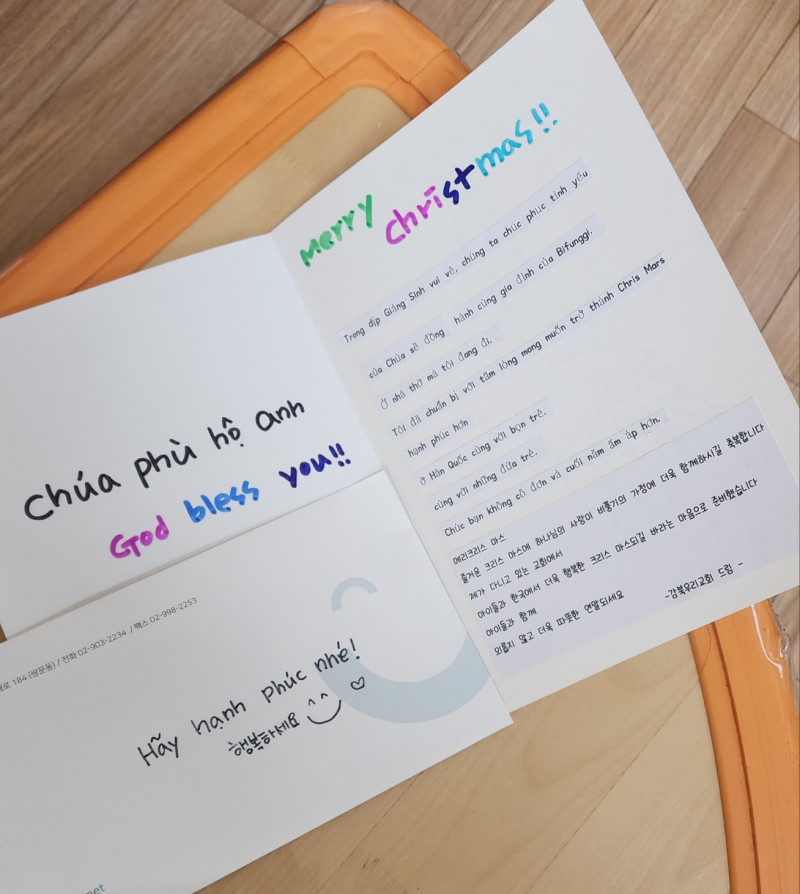 merry christmas!!
Trong dịp Giáng Sinh vui vẻ, chúng ta chúc phúc tình yêu
của Chúa sẽ đồng hành cùng gia đình của Bifunggi.
Ở nhà thờ mà tôi đang đi.
Tôi đã chuẩn bị với tấm lòng mong muốn trở thành Chris Mars
hạnh phúc hơn
ở Hàn Quốc cùng với bọn trẻ.
cùng với những đứa trẻ.
Chúc bạn không cô đơn và cuối năm ấm áp hơn.
메리크리스 마스
즐거운 크리스 마스에 하나님의 사랑이 비풍기의 가정에 더욱 함께하시길 축복합니다
제가 다니고 있는 교회에서
아이들과 한국에서 더욱 행복한 크리스 마스되길 바라는 마음으로 준비했습니다
아이들과 함께
외롭지 않고 더욱 따뜻한 연말되세요
-강북우리교회 드림 -
Chúa phù hộ anh
God bless you!!
184 (쌍문동) / 전화 02-903-2234 / 팩스 02-998-2253
Hãy hạnh phúc nhé!
행복하세요